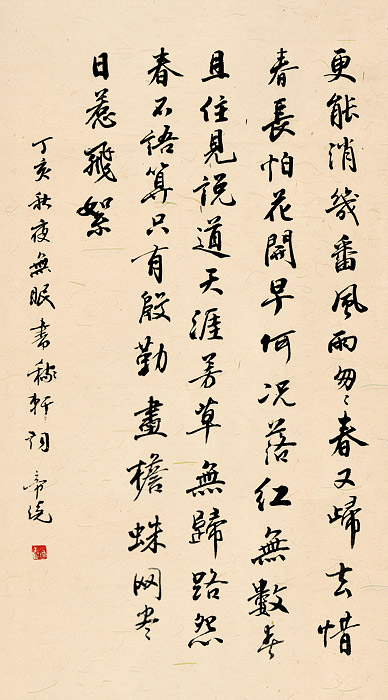 更能消幾番風雨匆〻春又歸去惜
春長怕花開早何况落紅無數春
且住見説道天涯芳草無歸路怨
春不語算只有殷勤畫檐蛛网尽
日惹飛絮
丁亥秋夜無眠書稼軒詞